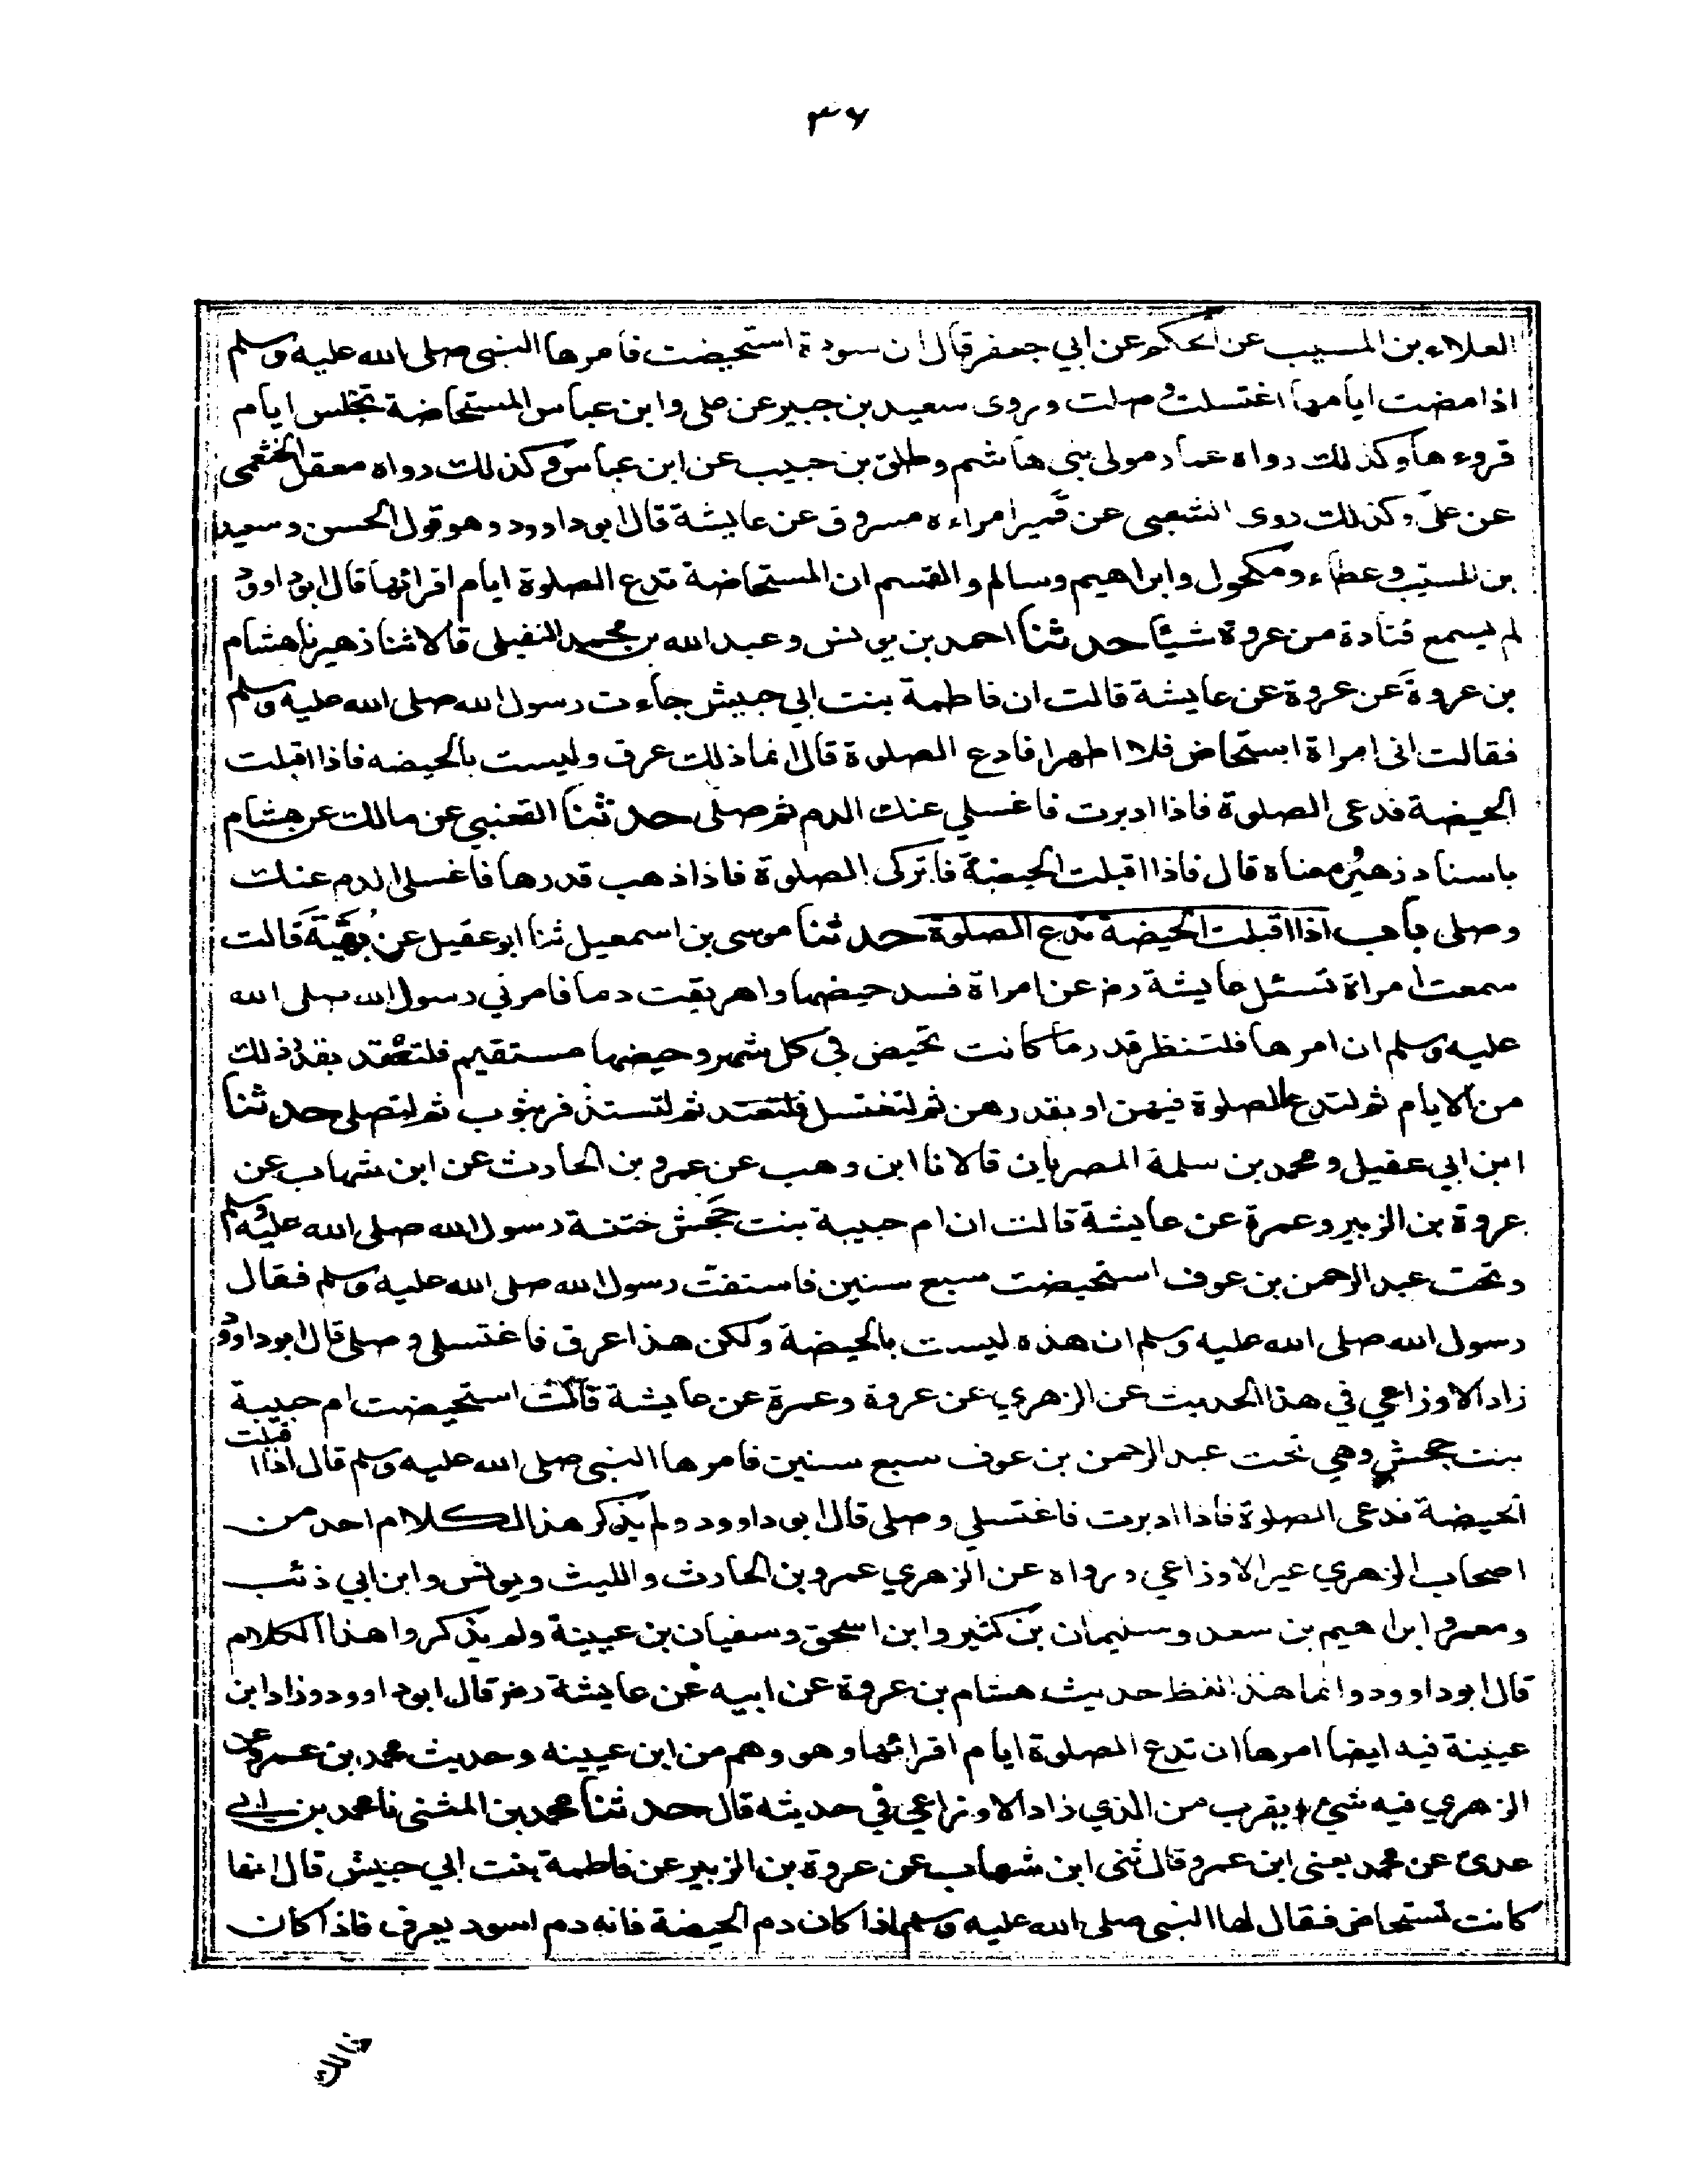 ٣٦
العلاء بن المسيب عن الحكم عن ابي جعفر قال ان سودة استحيضت فامرها النبي صلى الله عليه وسلم
اذا مضت ايامها اغتسلت وصلت وروى سعيد بن جبير عن على وابن عباس المستحاضة تجلس ايام
قروءها وكذلك رواه عمار مولى بني هاشم وطلق بن حبيب عن ابن عباس وكذلك رواه معقل الخثعمى
عن على وكذلك روى الشعبى عن قمير امراءه مسروق عن عايشة قال ابو داوود وهو قول الحسن وسعيد
بن المسيب وعطاء ومكحول وابراهيم وسالم والقسم ان المستحاضة تدع الصلوة ايام اقرائها قال ابو داوود
لم يسمع قتادة من عروة شيئا حدثنا احمد بن يونس وعبد الله بن محمد النفيلى قالا ثنا زهير نا هشام
بن عروة عن عروة عن عايشة قالت ان فاطمة بنت ابي حبيش جاءت رسول الله صلى الله عليه وسلم
فقالت انى امراة استحاض فلا اطهر افادع الصلوة قال انما ذلك عرق وليست بالحيضه فاذا اقبلت
الحيضة فدعى الصلوة فاذا ادبرت فاغسلي عنك الدم ثم صلى حدثنا القعنبي عن مالك عن هشام
باسناد زهير ومعناه قال فاذا اقبلت الحيضة فاتركى الصلوة فاذا ذهب قدرها فاغسلى الدم عنك
وصلى باب اذا اقبلت الحيضة تدع الصلوة حدثنا موسى بن اسمعيل ثنا ابو عقيل عن بهية قالت
سمعت امراة تسئل عايشة رض عن امراة فسد حيضها واهريقت دما فامرني رسول الله صلى الله
عليه وسلم ان امرها فلتنظر قدر ما كانت تحيض في كل شهر وحيضها مستقيم فلتعتد بقدر ذلك
من الايام ثم لتدع الصلوة فيهن او بقدرهن ثم لتغتسل فلتعتد ثم لتستذفر بثوب ثم لتصلى حدثنا
ابن ابي عقيل ومحمد بن سلمة المصريان قالا نا ابن وهب عن عمرو بن الحارث عن ابن شهاب عن
عروة بن الزبير وعمرة عن عايشة قالت ان ام حبيبة بنت جحش ختنة رسول الله صلى الله عليه وسلم
وتحت عبد الرحمن بن عوف استحيضت سبع سنين فاستفتت رسول الله صلى الله عليه وسلم فقال
رسول الله صلى الله عليه وسلم ان هذه ليست بالحيضة ولكن هذا عرق فاغتسلى وصلى قال ابو داوود
زاد الاوزاعي في هذا الحديث عن الزهري عن عروة وعمرة عن عايشة قالت استحيضت ام حبيبة
بنت جحش وهي تحت عبد الرحمن بن عوف سبع سنين فامرها النبى صلى الله عليه وسلم قال اذا اقبلت
الحيضة فدعى الصلوة فاذا ادبرت فاغتسلي وصلى قال ابو داوود ولم يذكر هذا الكلام احد من
اصحاب الزهري غير الاوزاعي ورواه عن الزهري عمرو بن الحارث والليث ويونس وابن ابي ذئب
ومعمر وابراهيم بن سعد وسليمان بن كثير وابن اسحق وسفيان بن عيينة ولم يذكروا هذا الكلام
قال ابو داوود وانما هذا لفظ حديث هشام بن عروة عن ابيه عن عايشة رض قال ابو داوود وزاد ابن
عيينة فيه ايضا امرها ان تدع الصلوة ايام اقرائها وهو وهم من ابن عيينه وحديث محمد بن عمرو عن
الزهري فيه شئ ويقرب من الذي زاد الاوزاعي في حديثه قال حدثنا محمد بن المثنى نا محمد بن ابي
عدى عن محمد يعنى ابن عمرو قال ثنى ابن شهاب عن عروة بن الزبير عن فاطمة بنت ابي حبيش قال انها
كانت تستحاض فقال لها النبى صلى الله عليه وسلم اذا كان دم الحيضة فانه دم اسود يعرف فاذا كان
ذالك